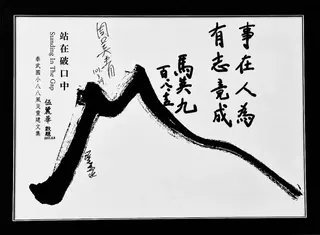 事在人為
有志竟成
馬英九
周美青
站在破口中
Standing In The Gap
泰武國小八八風災重建文集
伍麗華